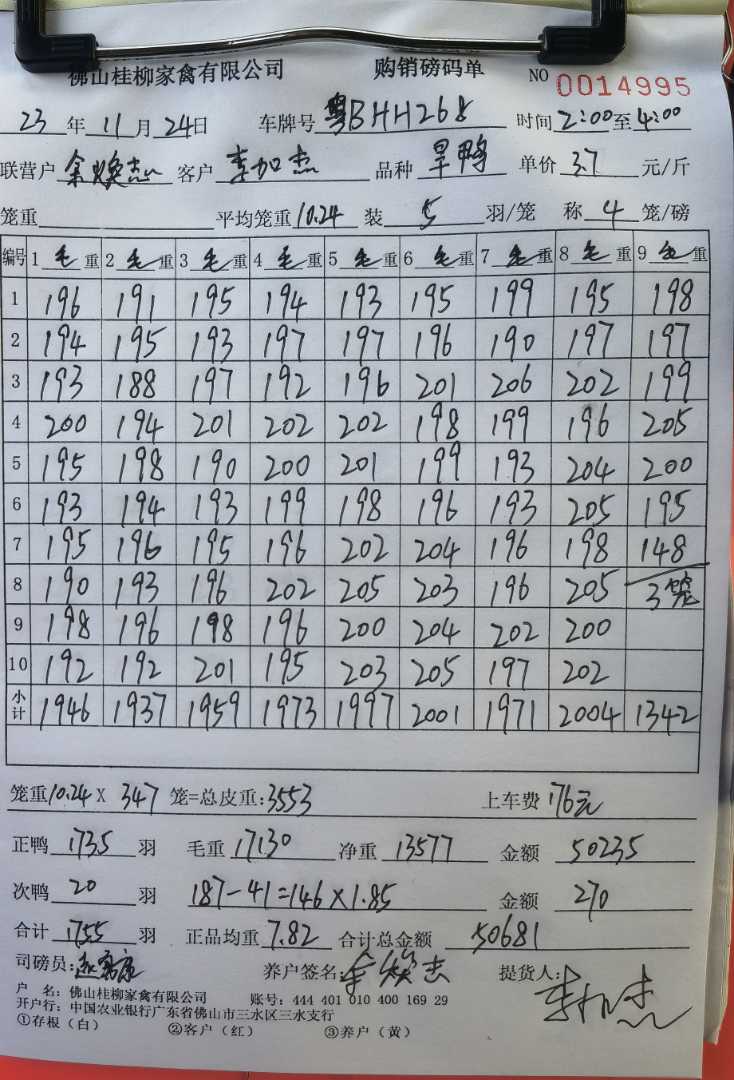 佛山桂柳家禽有限公司 购销磅码单 NO 0014995
23年11月24日 车牌号粤BHH268 时间2:00至4:00
联营户余焕杰 客户李加杰 品种旱鸭 单价3.7元/斤
笼重 平均笼重10.24 装5羽/笼 称4笼/磅
编号 1毛重 2毛重 3毛重 4毛重 5毛重 6毛重 7毛重 8毛重 9毛重
1 196 191 195 194 193 195 199 195 198
2 194 195 193 197 197 196 190 197 197
3 193 188 197 192 196 201 206 202 199
4 200 194 201 202 202 198 199 196 205
5 195 198 190 200 201 199 193 204 200
6 193 194 193 199 198 196 193 205 195
7 195 196 195 196 202 204 196 198 148
8 190 193 196 202 205 203 196 205 3笼
9 198 196 198 196 200 204 202 200
10 192 192 201 195 203 205 197 202
小计 1946 1937 1959 1973 1997 2001 1971 2004 1342
笼重10.24X 347笼=总皮重:3553 上车费176元
正鸭1735羽 毛重17130 净重13577 金额50235
次鸭20羽 187-41=146×1.85 金额270
合计1755羽 正品均重7.82 合计总金额50681
司磅员: 养户签名:余焕杰 提货人:李加杰
户 名：佛山桂柳家禽有限公司 账号：444 401 010 400 169 29
开户行：中国农业银行广东省佛山市三水区三水支行
①存根（白） ②客户（红） ③养户（黄）